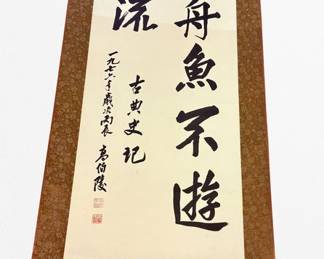 舟魚不遊
流
古典史記
一九七六年歲次丙辰
高伯陵